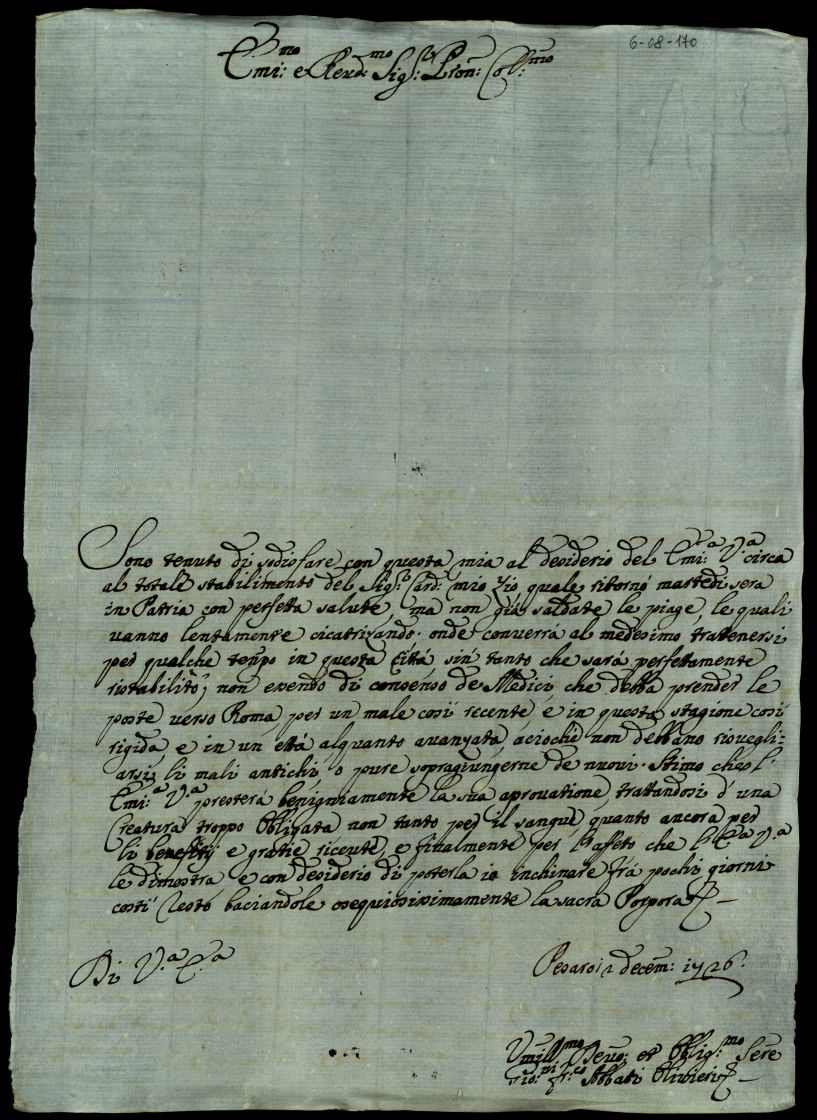 6-08-170
Emi:mo e Revd:mo Sig:r Pron: Col:mo
Sono tenuto di sodisfare con questa mia al desiderio del Emi:a V:a circa
al totale stabilimento del Sig:r Card: mio Zio quale ritornò martedi sera
in Patria con perfetta salute, ma non già saldate le piage, le quali
vanno lentamente cicatrizando. onde converrà al medesimo trattenersi
per qualche tempo in questa Città, sin tanto che sarà perfettamente
ristabilito, non essendo di consenso de Medici, che debba prender le
poste verso Roma, per un male così recente, e in questa stagione così
rigida, e in un età alquanto avanzata, acioche non debbano risvegli=
arsi li mali antichi, o pure sopragiungerne de nuovi. Stimo che l'
Emi:a V:a presterà benignamente la sua aprovatione, trattandosi d'una
Creatura troppo Obligata non tanto per il sangue, quanto ancora per
li benefitij e gratie ricente, e finalmente per l'affetto che l'E:a V:a
le dimostra, e con desiderio di poterla io inchinare frà pochi giorni
costì resto baciandole ossequiosissimamente la sacra Porpora
Di V:a E:a
Pesaro 12 decem: 1726.
Vmill:mo Devo: et Oblig:mo Sere
Gio:ni Fr:co Abbati Olivieri